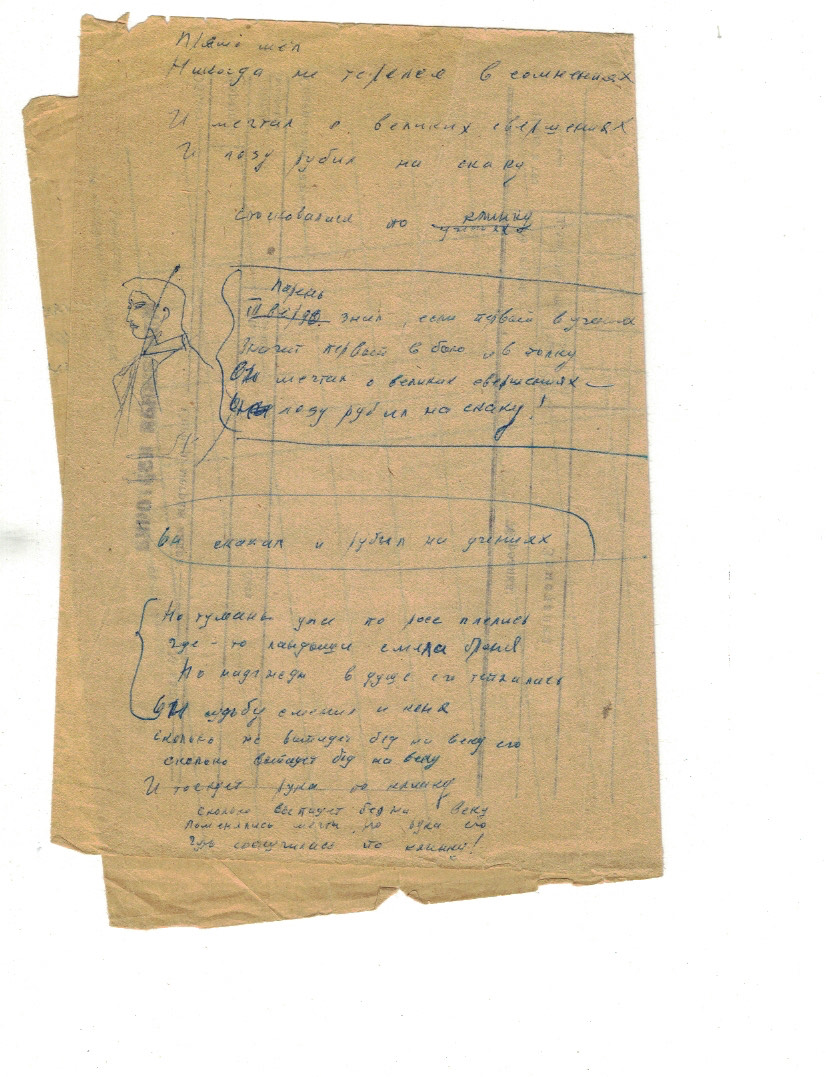 Прямо шёл
Никогда не терялся в сомнениях
И мечтал о великих свершениях
И лозу рубил на скаку
Стосковалась по клинку
учениях
Парень
Твёрдо знал, если первый в учении
Значит первый в бою и в толку
Он мечтал о великих свершениях –
Он лозу рубил на скаку!
Он скакал и рубил на учениях
Но туманы уже по росе плелись
Где-то ландыши смяла броня
Но надежды в душе его теплились
Он судьбу сменил и коня
Сколько же выпадет бед на веку его
Сколько выпадет бед на веку
И тоскует рука по клинку
Сколько выпадет бед на веку
Поменялись мечты, но рука его
Чуть соскучилась по клинку!